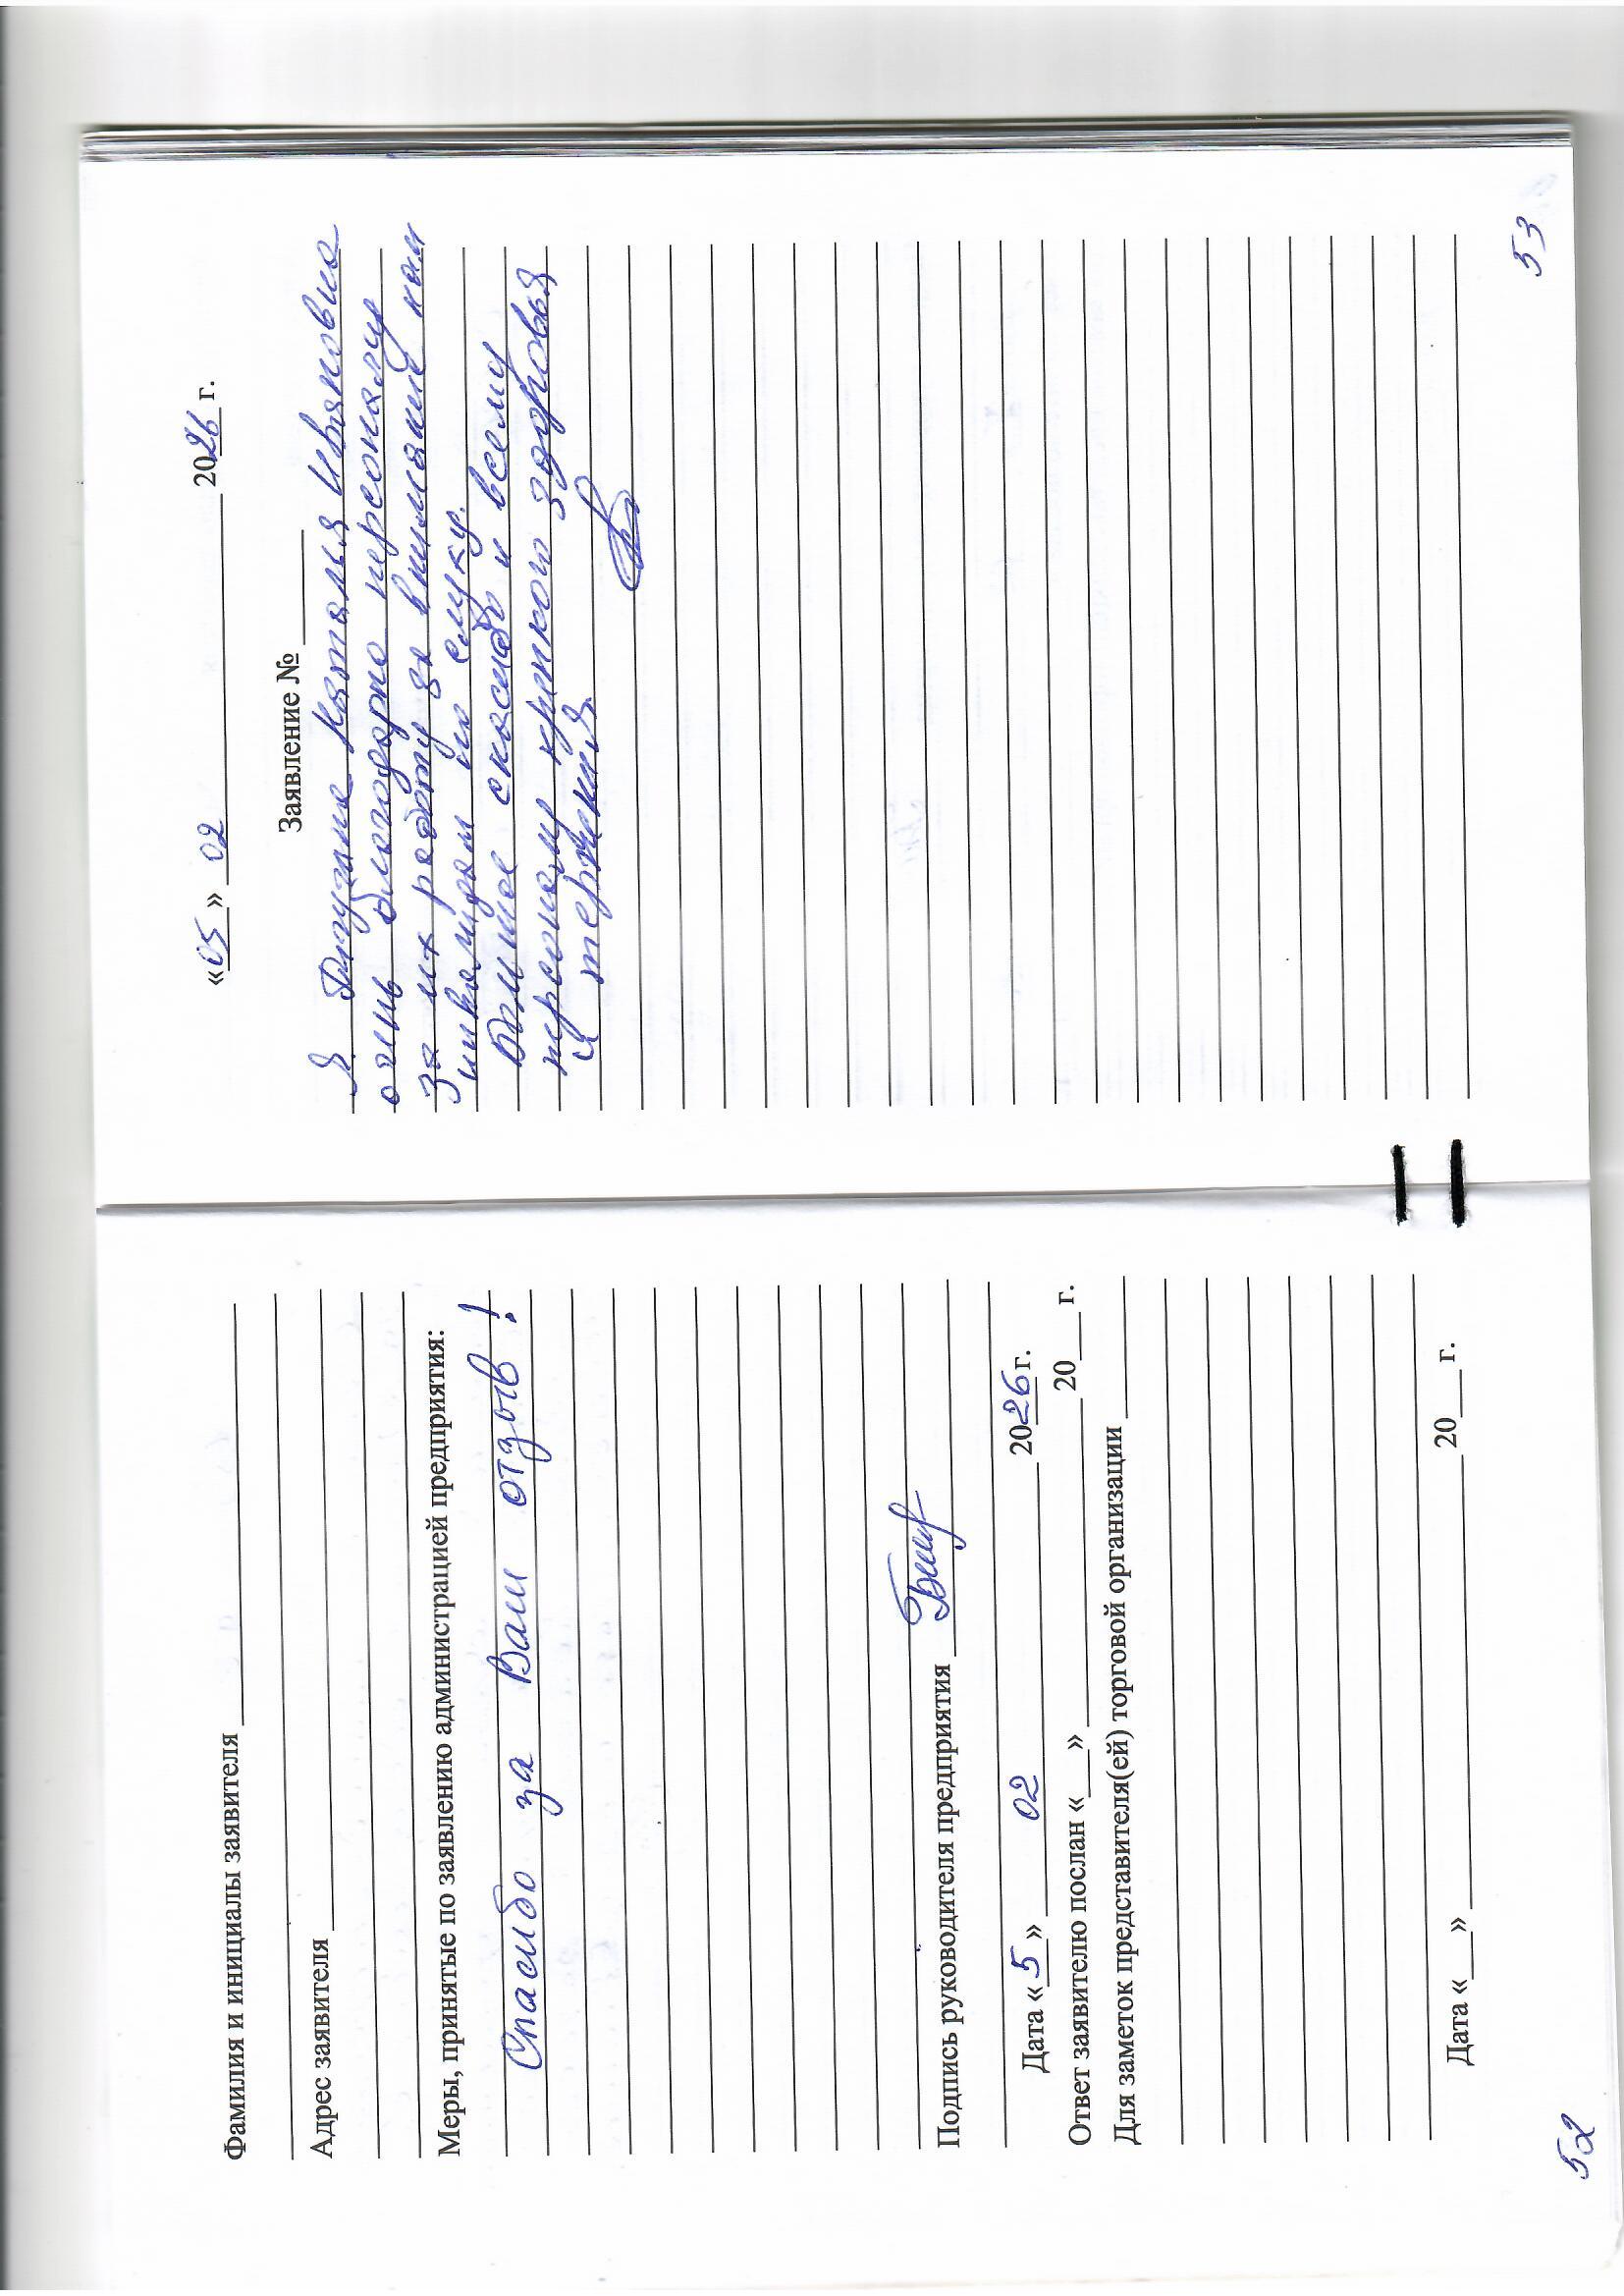 Фамилия и инициалы заявителя
Адрес заявителя
Меры, принятые по заявлению администрацией предприятия:
Спасибо за Ваш отзыв!
Подпись руководителя предприятия
Дата «5» 02 2026 г.
Ответ заявителю послан «___» 20___ г.
Для заметок представителя(ей) торговой организации
Дата «___» 20___ г.
52
«05» 02 2026 г.
Заявление №
Я Наталья Ивановна
очень благодарна персоналу
за их работу за внимание к нам
инвалидам по слуху.
Большое спасибо и всему
персоналу крепкого здоровья
и терпения.
53